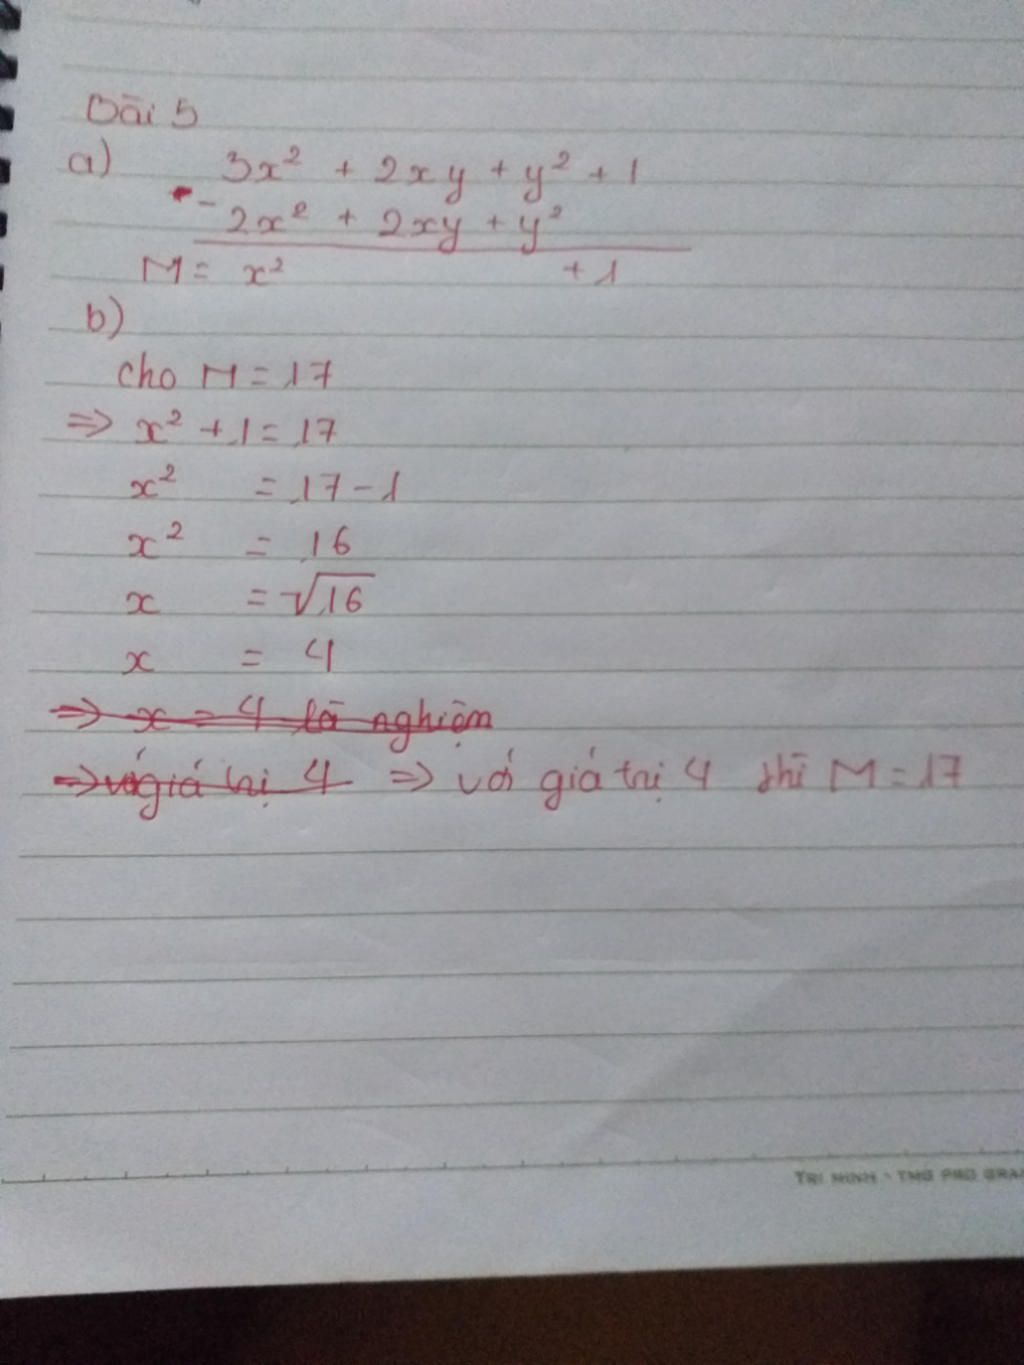 Bài 5
a) 3x² + 2xy + y² + 1
- 2x² + 2xy + y²
M = x² + 1
b)
cho M = 17
⇒ x² + 1 = 17
x² = 17 - 1
x² = 16
x = √16
x = 4
⇒ x = 4 là nghiệm
⇒ với giá trị 4 ⇒ với giá trị 4 thì M = 17
TRI MINH - TMG PRO GRA